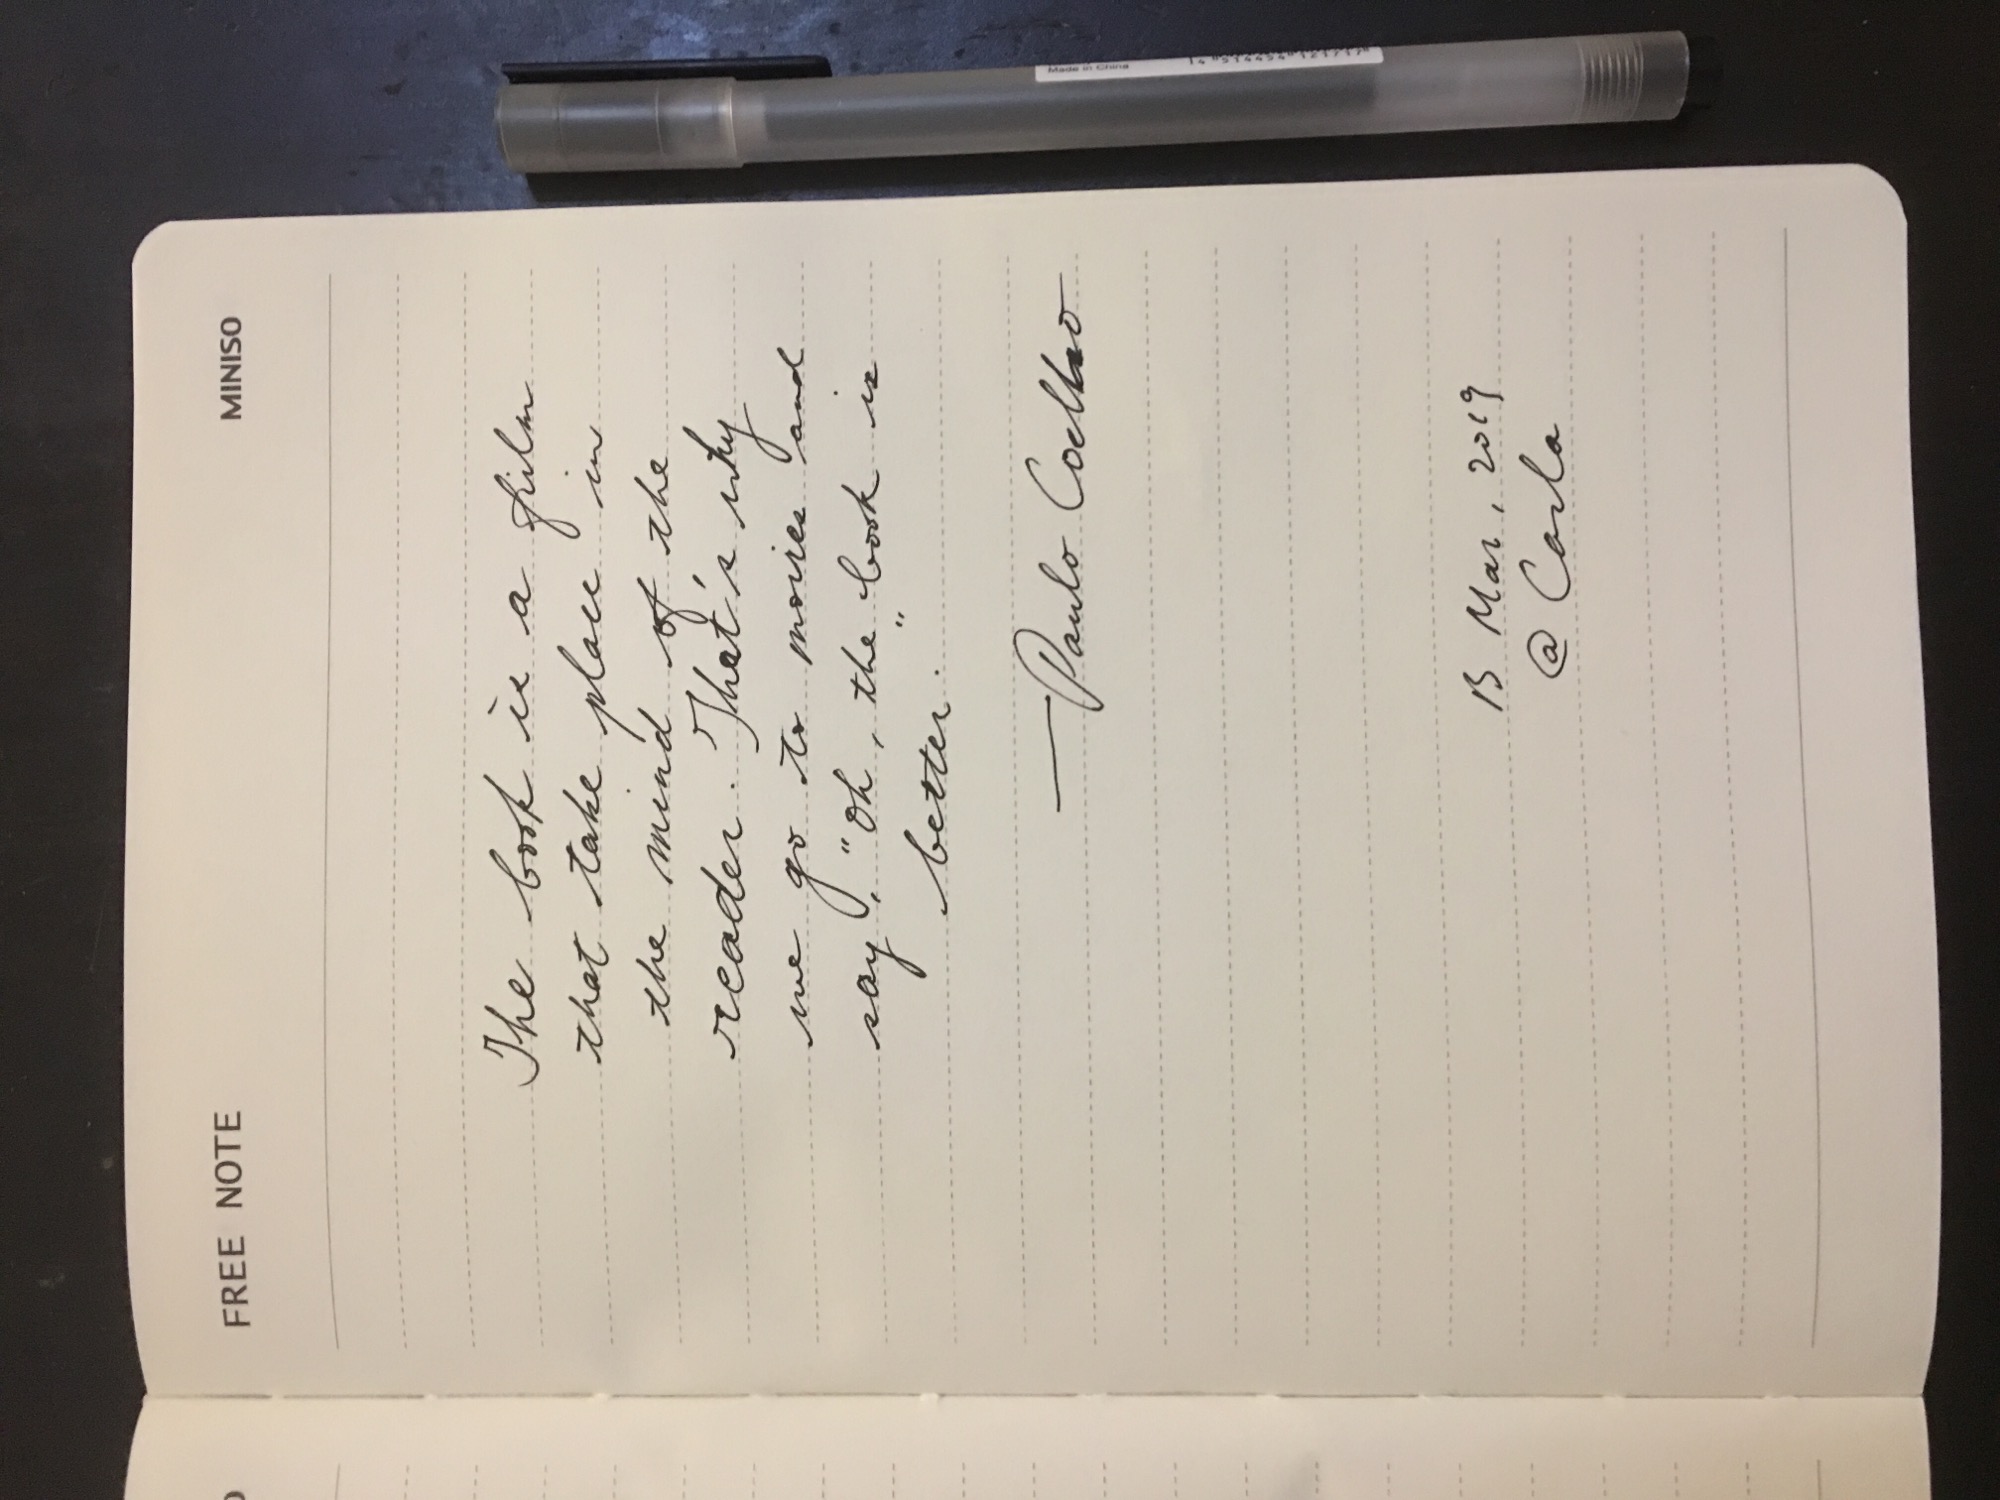 FREE NOTE MINISO
The book is a film
that take place in
the mind of the
reader. That's why
we go to movies and
say, "oh, the book is
better."
— Paulo Coelho
13 Mar, 2019
@ Carla
Made in China